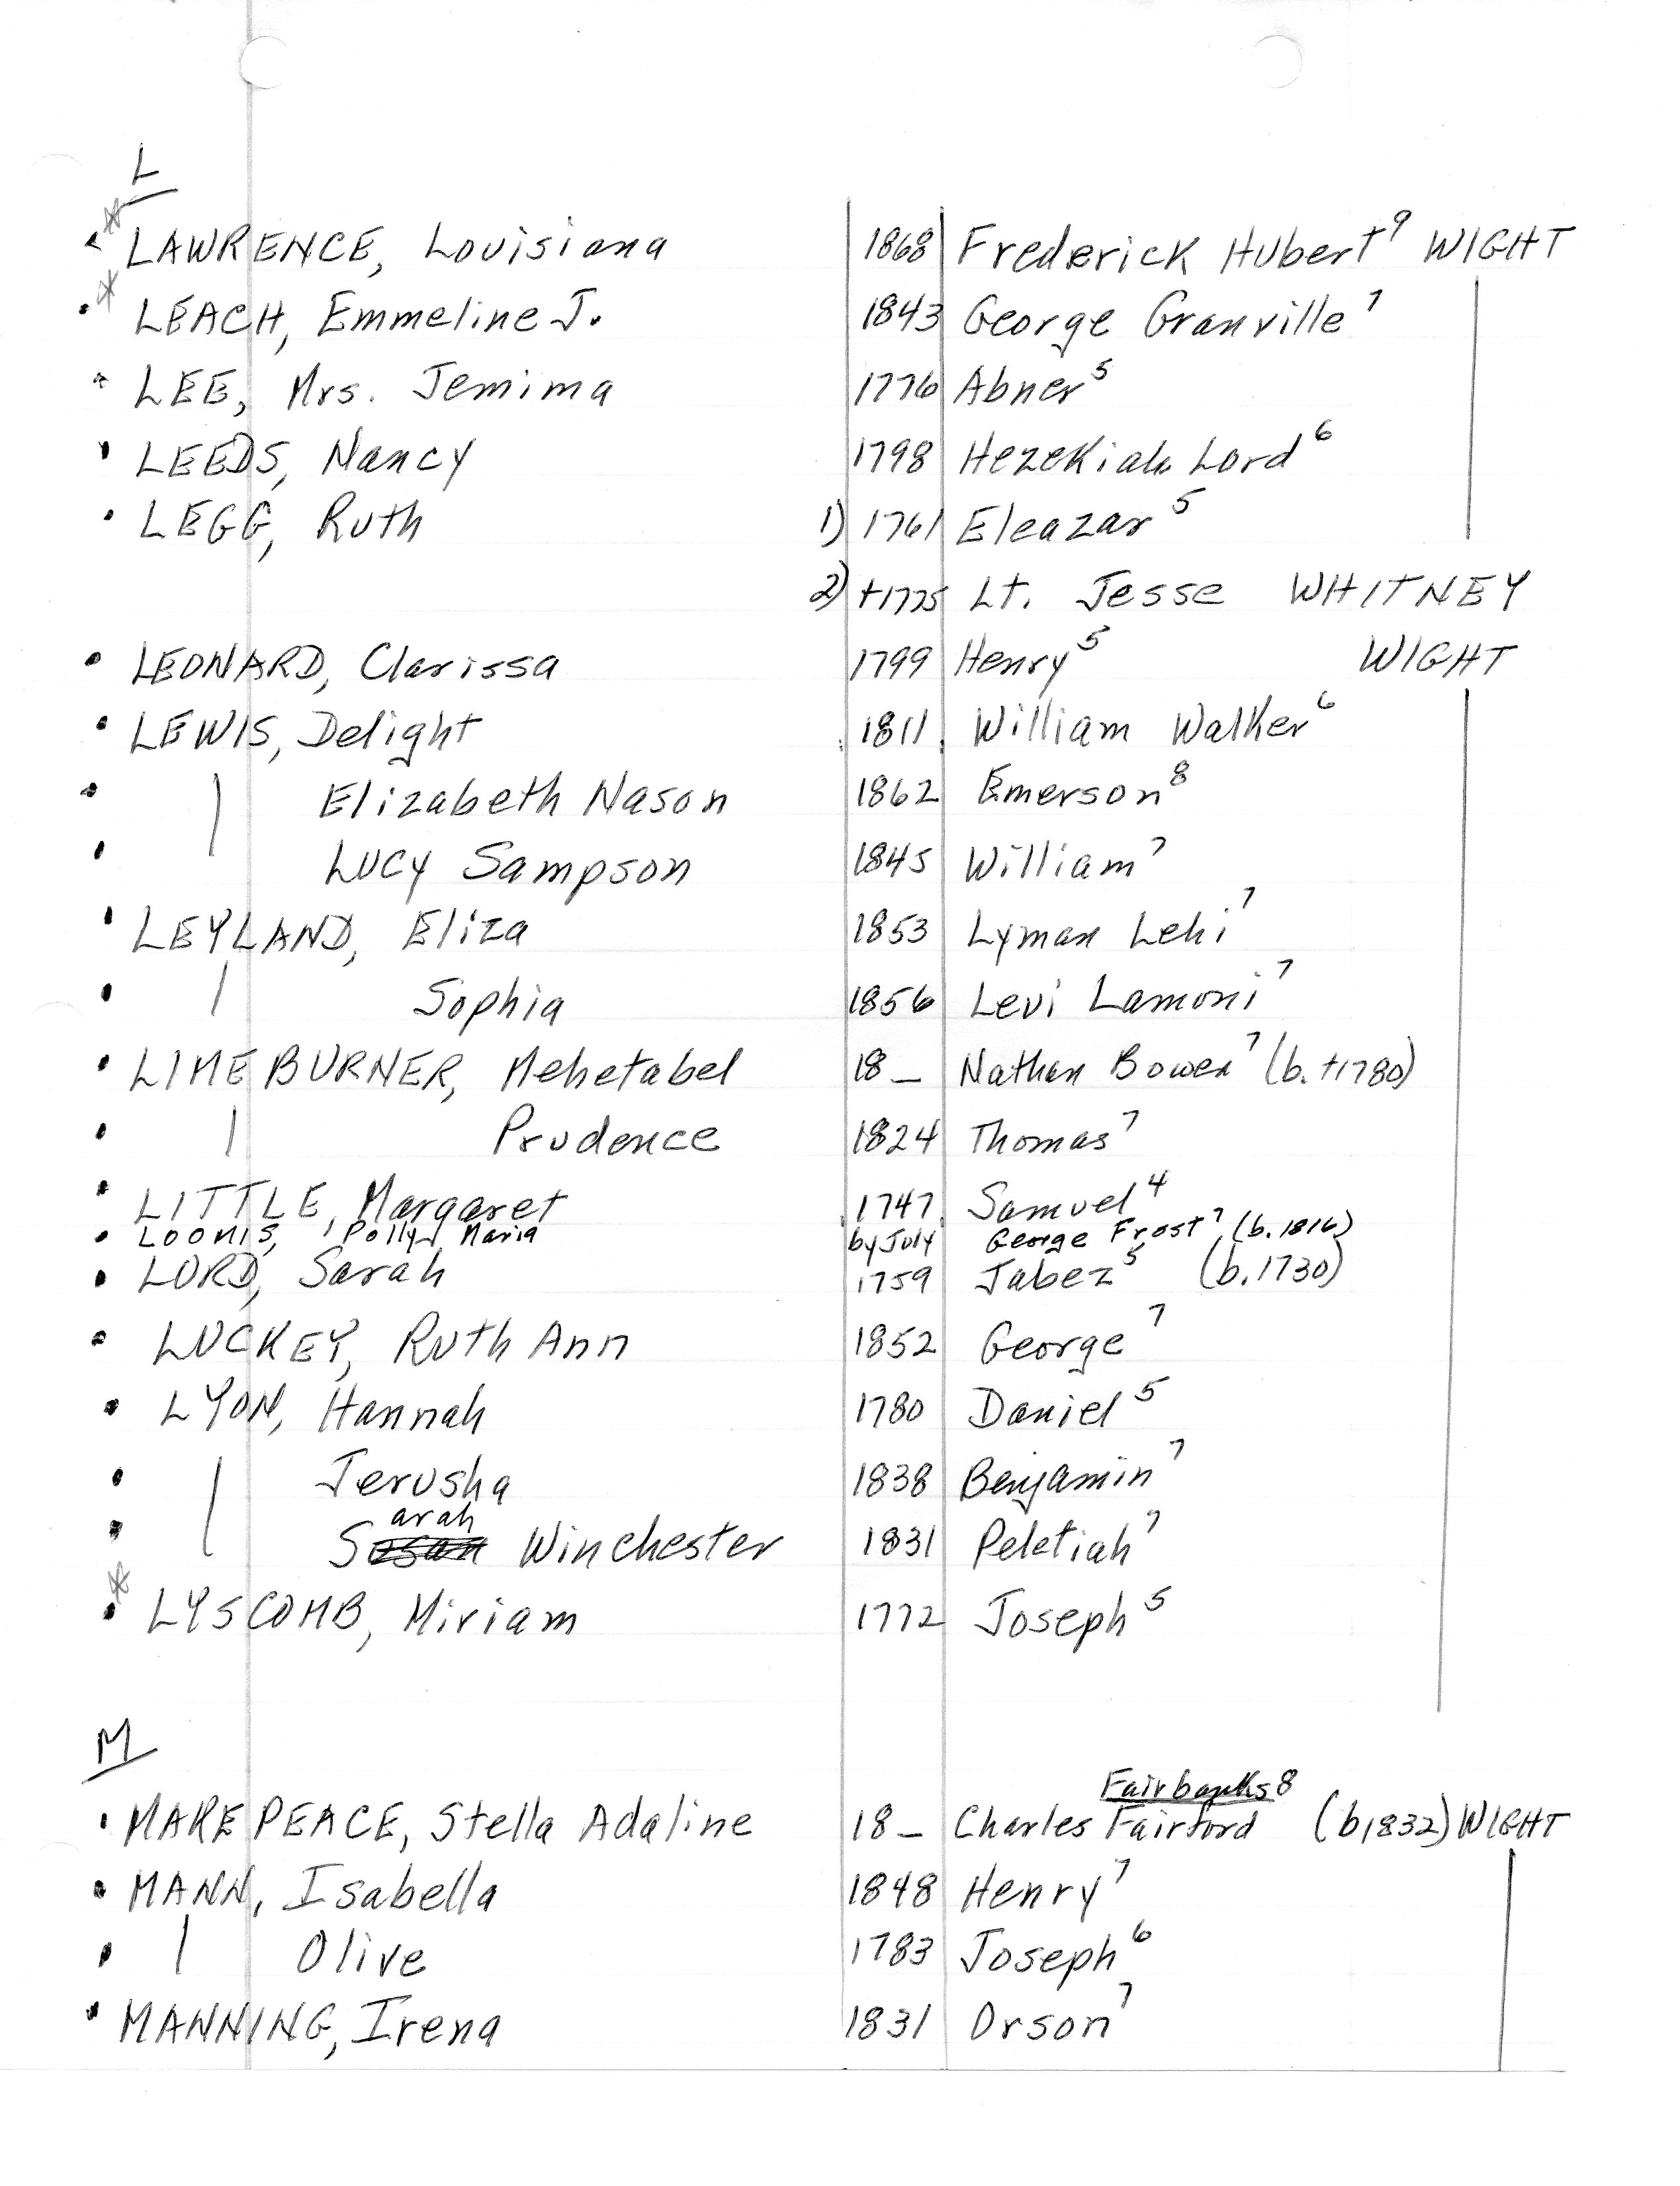 L
LAWRENCE, Louisiana 1868 Frederick Hubert⁹ WIGHT
LEACH, Emmeline J. 1843 George Granville⁷
LEE, Mrs. Jemima 1776 Abner⁵
LEEDS, Nancy 1798 Hezekiah Lord⁶
LEGG, Ruth 1) 1761 Eleazar⁵
2) +1775 Lt. Jesse WHITNEY
LEONARD, Clarissa 1799 Henry⁵ WIGHT
LEWIS, Delight 1811 William Walker⁶
Elizabeth Nason 1862 Emerson⁸
Lucy Sampson 1845 William⁷
LEYLAND, Eliza 1853 Lyman Lehi⁷
Sophia 1856 Levi Lamoni⁷
LIMEBURNER, Mehetabel 18_ Nathan Bowen⁷ (b. +1780)
Prudence 1824 Thomas⁷
LITTLE, Margaret 1747 Samuel⁴
LOOMIS, Polly Maria by July George Frost⁷ (b. 1816)
LORD, Sarah 1759 Jabez⁵ (b. 1730)
LUCKEY, Ruth Ann 1852 George⁷
LYON, Hannah 1780 Daniel⁵
Jerusha 1838 Benjamin⁷
arah
Susan Winchester 1831 Peletiah⁷
LYSCOMB, Miriam 1772 Joseph⁵
M
Fairbanks⁸
MAKEPEACE, Stella Adaline 18_ Charles Fairford (b 1832) WIGHT
MANN, Isabella 1848 Henry⁷
Olive 1783 Joseph⁶
MANNING, Irena 1831 Orson⁷